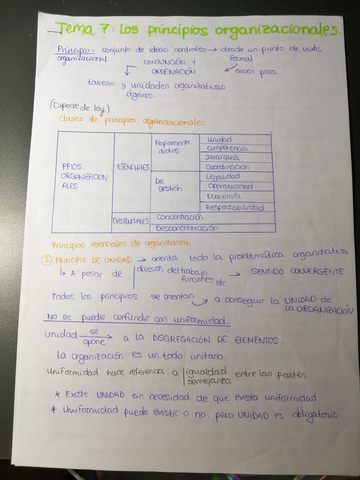 Tema 7: Los principios organizacionales.
Principio: conjunto de ideas centrales → desde un punto de vista
organizacional formal
CONJUNCIÓN Y
ORDENACIÓN sirven para
tareas y unidades organizativas
órgano
(Especie de ley)
Clases de principios organizacionales
PPIOS. ORGANIZACION ALES
ESENCIALES
Propiamente dichos
Unidad
Competencia
Jerarquía
Coordinación
De gestión
Legalidad
Operatividad
Economía
Responsabilidad
EXISTENCIALES
Concentración
Desconcentración
Principios esenciales de organización
① PRINCIPIO DE UNIDAD → orienta todo la problemática organizativa
↳ A pesar de división del trabajo
funciones
etc
→ SENTIDO CONVERGENTE
Todos los principios se orientan → a conseguir la UNIDAD de
la ORGANIZACIÓN
NO SE puede confundir con uniformidad.
Unidad se opone → a LA DISGREGACIÓN DE ELEMENTOS.
La organización es un todo unitario.
Uniformidad hace referencia a igualdad
semejanza
entre las partes.
* EXISTE UNIDAD sin necesidad de que exista uniformidad
* Uniformidad puede existir o no, pero UNIDAD es obligatorio